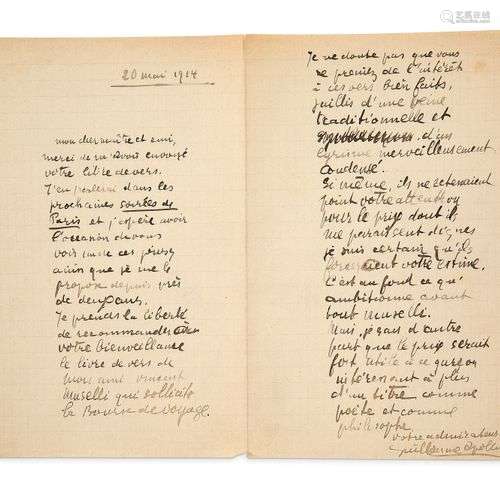 20 mai 1914
mon cher maître et ami,
merci de m'avoir envoyé
votre livre de vers.
J'en parlerai dans les
prochaines soirées de
Paris et j'espère avoir
l'occasion de vous
voir un de ces jours
ainsi que je me le
propose depuis près
de deux ans.
Je prends la liberté
de recommander à
votre bienveillance
le livre de vers de
mon ami vincent
muselli qui sollicite
la Bourse de voyage.
Je ne doute pas que vous
ne preniez de l'intérêt
à ces vers bien faits,
jaillis d'une veine
traditionnelle et
d'un
lyrisme merveilleusement
condensé.
Si même, ils ne retenaient
point votre attention
pour le prix dont ils
me paraissent dignes
je suis certain qu'ils
forceraient votre estime.
C'est au fond ce qu'
ambitionne avant
tout muselli.
Mais, je sais d'autre
part que le prix serait
fort utile à ce garçon
intéressant à plus
d'un titre comme
poète et comme
philosophe
votre admirateur
Guillaume Apolli